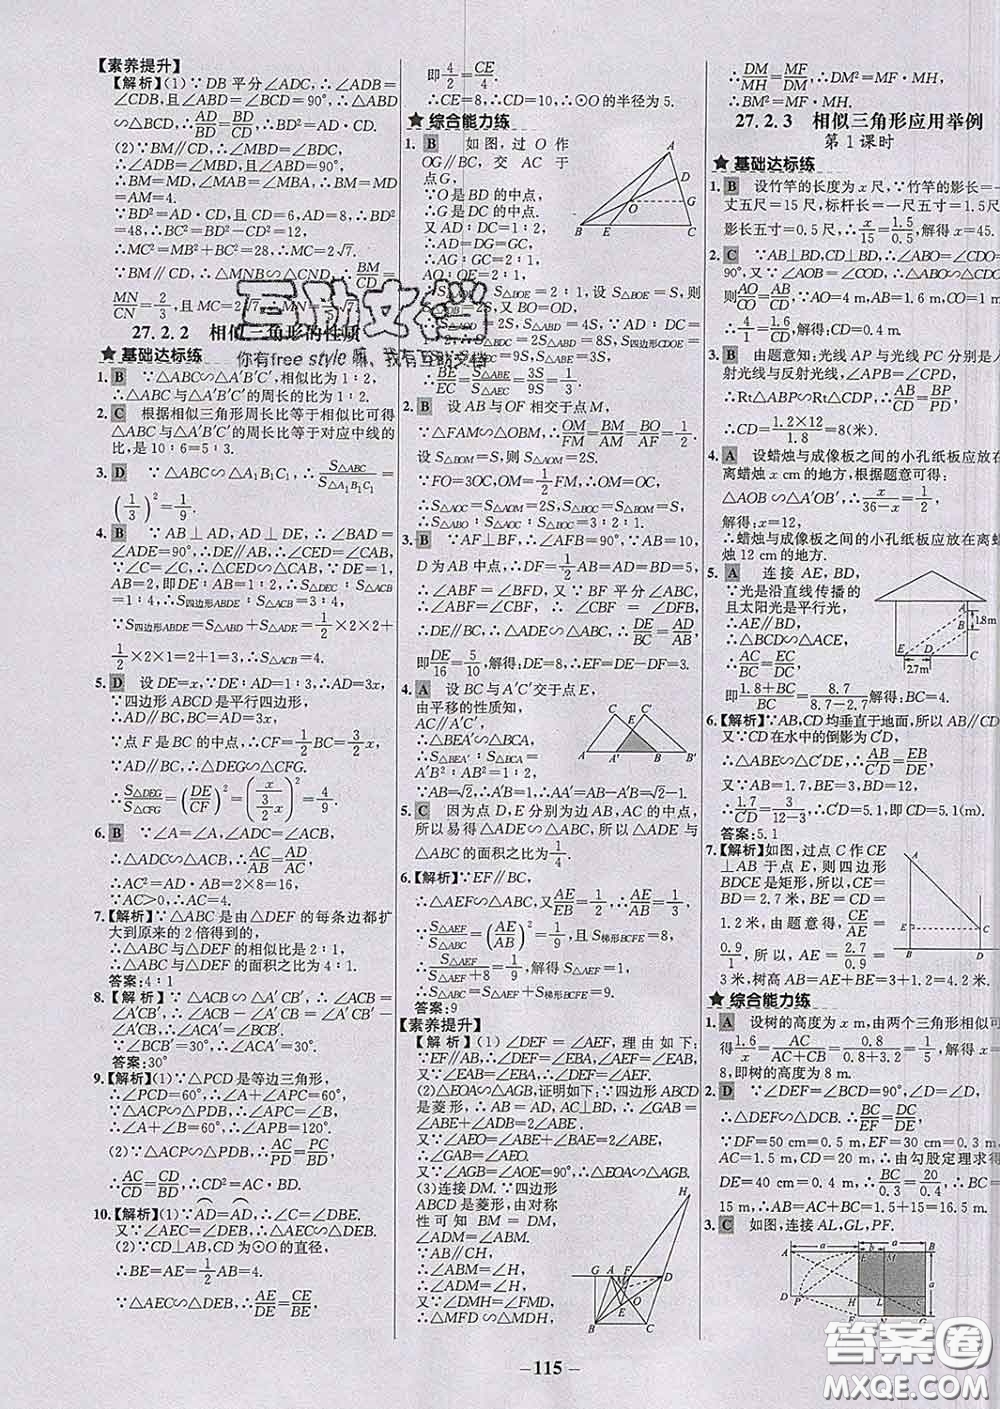 【素养提升】
【解析】(1)∵DB平分∠ADC,∴∠ADB=
∠CDB,且∠ABD=∠BCD=90°,∴△ABD
∽△BCD.∴AD/BD=BD/CD.∴BD²=AD·CD.
(2)∵BM∥CD,∴∠MBD=∠BDC,
∴∠ADB=∠MBD,且∠ABD=90°,
∴BM=MD,∠MAB=∠MBA,
∴BM=MD=AM=4.
∵BD²=AD·CD,且CD=6,AD=8,∴BD²
=48,∴BC²=BD²-CD²=12,
∴MC²=MB²+BC²=28,∴MC=2√7.
∵BM∥CD,∴△MNB∽△CND,∴BM/CD=
MN/CN=2/3,且MC=2√7,
27.2.2 相似三角形的性质
★基础达标练
1. B ∵△ABC∽△A′B′C′,相似比为1∶2,
∴△ABC与△A′B′C′的周长的比为1∶2.
2. C 根据相似三角形周长比等于相似比可得
△ABC与△A′B′C′的周长比等于对应中线的
比,是10∶6=5∶3.
3. D ∵△ABC∽△A₁B₁C₁,∴S△ABC/S△A₁B₁C₁=
(1/3)²=1/9.
4. B ∵AB⊥AD,AD⊥DE,∴∠BAD=
∠ADE=90°,∴DE∥AB,∴∠CED=∠CAB,
∵∠C=∠C,∴△CED∽△CAB,∵DE=1,
AB=2,即DE∶AB=1∶2,∴S△DEC∶S△ACB
=1∶4,∴S四边形ABDE∶S△ACB=3∶4,
∵S四边形ABDE=S△ABD+S△ADE=1/2×2×2+
1/2×2×1=2+1=3,∴S△ACB=4.
5. D 设DE=x,∵DE∶AD=1∶3,∴AD=3x,
∵四边形ABCD是平行四边形,
∴AD∥BC,BC=AD=3x,
∵点F是BC的中点,∴CF=1/2BC=3/2x,
∵AD∥BC,∴△DEG∽△CFG,
∴S△DEG/S△CFG=(DE/CF)²=(x/(3/2x))²=4/9.
6. B ∵∠A=∠A,∠ADC=∠ACB,
∴△ADC∽△ACB,∴AC/AB=AD/AC,
∴AC²=AD·AB=2×8=16,
∵AC>0,∴AC=4.
7.【解析】∵△ABC是由△DEF的每条边都扩
大到原来的2倍得到的,
∴△ABC与△DEF的相似比是2∶1,
∴△ABC与△DEF的面积之比为4∶1.
答案:4∶1
8.【解析】∵△ACB∽△A′CB′,∴∠ACB=
∠A′CB′,∴∠ACB-∠A′CB=∠A′CB′-
∠A′CB,∴∠ACA′=∠BCB′.
∵∠BCB′=30°,∴∠ACA′=30°.
答案:30°
9.【解析】(1)∵△PCD是等边三角形,
∴∠PCD=60°,∴∠A+∠APC=60°,
∵△ACP∽△PDB,∴∠APC=∠B,
∴∠A+∠B=60°,∴∠APB=120°.
(2)∵△ACP∽△PDB,∴AC/PD=PC/BD,
∴AC/CD=CD/BD,∴CD²=AC·BD.
10.【解析】(1)∵AD=AD,∴∠C=∠DBE.
又∵∠AEC=∠DEB,∴△AEC∽△DEB.
(2)∵CD⊥AB,CD为⊙O的直径,
∴BE=AE=1/2AB=4.
∵△AEC∽△DEB,∴AE/DE=CE/BE,
即4/2=CE/4.
∴CE=8,∴CD=10,∴⊙O的半径为5.
★综合能力练
1. B 如图,过O作
OG∥BC,交AC于
点G,
∵O是BD的中点,
∴G是DC的中点.
又AD∶DC=1∶2,
∴AD=DG=GC,
∴AG∶GC=2∶1,
AO∶OE=2∶1,
S△BOE=2∶1,设S△BOE=S,则
△ABD=4S,
2. B 设AB与OF相交于点M,
∵△FAM∽△OBM,∴OM/FM=BM/AM=BO/AF=1/2.
设S△BOM=S,则S△AOM=2S.
∵FO=3OM,OM=1/2FM,
∴S△AOC=S△AOM=2S,S△BOC=S△BOM=S,
∴S△ABO∶S△AOC∶S△BOC=3∶2∶1.
3. B ∵AF⊥BF,∴∠AFB=90°,∵AB=10,
D为AB中点,∴DF=1/2AB=AD=BD=5,
∴∠ABF=∠BFD,又∵BF平分∠ABC,
∴∠ABF=∠CBF,∴∠CBF=∠DFB,
∴DE∥BC,∴△ADE∽△ABC,∴DE/BC=AD/AB,
即DE/16=5/10,解得:DE=8,∴EF=DE-DF=3.
4. A 设BC与A′C′交于点E,
由平移的性质知,
AC∥A′C′,
∴△BEA′∽△BCA,
∴S△BEA′∶S△BCA=
A′B²∶AB²=1∶2,
∵AB=√2,∴A′B=1,∴AA′=AB-A′B=√2-1.
5. C 因为点D,E分别为边AB,AC的中点,
所以易得△ADE∽△ABC,所以△ADE与
△ABC的面积之比为1/4.
6.【解析】∵EF∥BC,
∴△AEF∽△ABC,又∵AE/EB=1/2,∴AE/AB=1/3,
∴S△AEF/S△ABC=(AE/AB)²=1/9,且S梯形BCFE=8,
∴S△AEF/(S△AEF+8)=1/9,解得S△AEF=1,
∴S△ABC=S△AEF+S梯形BCFE=9.
答案:9
【素养提升】
【解析】(1)∠DEF=∠AEF,理由如下:
∵EF∥AB,∴∠DEF=∠EBA,∠AEF=∠BAE,
又∵∠EAB=∠EBA,∴∠DEF=∠AEF.
(2)△EOA∽△AGB,证明如下:∵四边形ABCD
是菱形,∴AB=AD,AC⊥BD,∴∠GAB=
∠ABE+∠ADB=2∠ABE.
又∵∠AEO=∠ABE+∠BAE=2∠ABE,
∴∠GAB=∠AEO.
又∠AGB=∠AOE=90°,∴△EOA∽△AGB.
(3)连接DM.∵四边形
ABCD是菱形,由对称
性可知BM=DM,
∠ADM=∠ABM,
∵AB∥CH,
∴∠ABM=∠H,
∴∠ADM=∠H,
又∵∠DMH=∠FMD,
∴△MFD∽△MDH,
∴DM/MH=MF/DM,∴DM²=MF·MH,
∴BM²=MF·MH.
27.2.3 相似三角形应用举例
第1课时
★基础达标练
1. B 设竹竿的长度为x尺,∵竹竿的影长=一
丈五尺=15尺,标杆长=一尺五寸=1.5尺
影长五寸=0.5尺,∴x/15=1.5/0.5,解得x=45.
2. C ∵AB⊥BD,CD⊥BD,∴∠ABO=∠CDO=
90°,又∵∠AOB=∠COD,∴△ABO∽△CDO
∴AO/CO=AB/CD,∵AO=4m,AB=1.6m,CO=1m
∴4/1=1.6/CD,∴CD=0.4m.
3. B 由题意知:光线AP与光线PC分别是入
射光线与反射光线,∠APB=∠CPD,
∴Rt△ABP∽Rt△CDP,∴AB/CD=BP/PD,
∴CD=1.2×12/1.8=8(米).
4. A 设蜡烛与成像板之间的小孔纸板应放在
离蜡烛x cm的地方,根据题意可得:
△AOB∽△A′OB′,∴x/(36-x)=1/2,
解得:x=12,
∴蜡烛与成像板之间的小孔纸板应放在离蜡
烛12 cm的地方.
5. A 连接AE,BD,
∵光是沿直线传播的
且太阳光是平行光,
∴AE∥BD,
∴△BCD∽△ACE,
∴AC/BC=EC/DC,
即(1.8+BC)/BC=8.7/(8.7-2.7)解得:BC=4.
6.【解析】∵AB,CD均垂直于地面,所以AB∥CD
又∵CD在水中的倒影为C′D,
∴△ABE∽△C′DE,∴AB/C′D=EB/DE,
又∵AB=1.7,BE=3,BD=12,
∴1.7/C′D=3/(12-3),∴C′D=5.1,即CD=5.1(m).
答案:5.1
7.【解析】如图,过点C作CE
⊥AB于点E,则四边形
BDCE是矩形,所以CE=
BD=2.7米,BE=CD=
1.2米,由题意得,CE/AE=
0.9/1,所以,AE=2.7/0.9=
3米,树高AB=AE+BE=3+1.2=4.2米.
★综合能力练
1. A 设树的高度为x m,由两个三角形相似可
得1.6/x=AC/(AC+CB)=0.8/(0.8+3.2)=1/5,解得x=
8,即树的高度为8 m.
2. D ∵∠DEF=∠BCD=90°,∠D=∠D,
∴△DEF∽△DCB.∴BC/EF=DC/DE.
∵DF=50 cm=0.5 m,EF=30 cm=0.3 m,
AC=1.5 m,CD=20 m,∴由勾股定理求得
DE=40 cm=0.4 m,∴BC/0.3=20/0.4,∴BC=
15 m,∴AB=AC+BC=1.5+15=16.5 m.
3. C 如图,连接AL,GL,PF.
互助文档
你有free style嘛,我有互助文档
115
答案圈
MXQE.COM